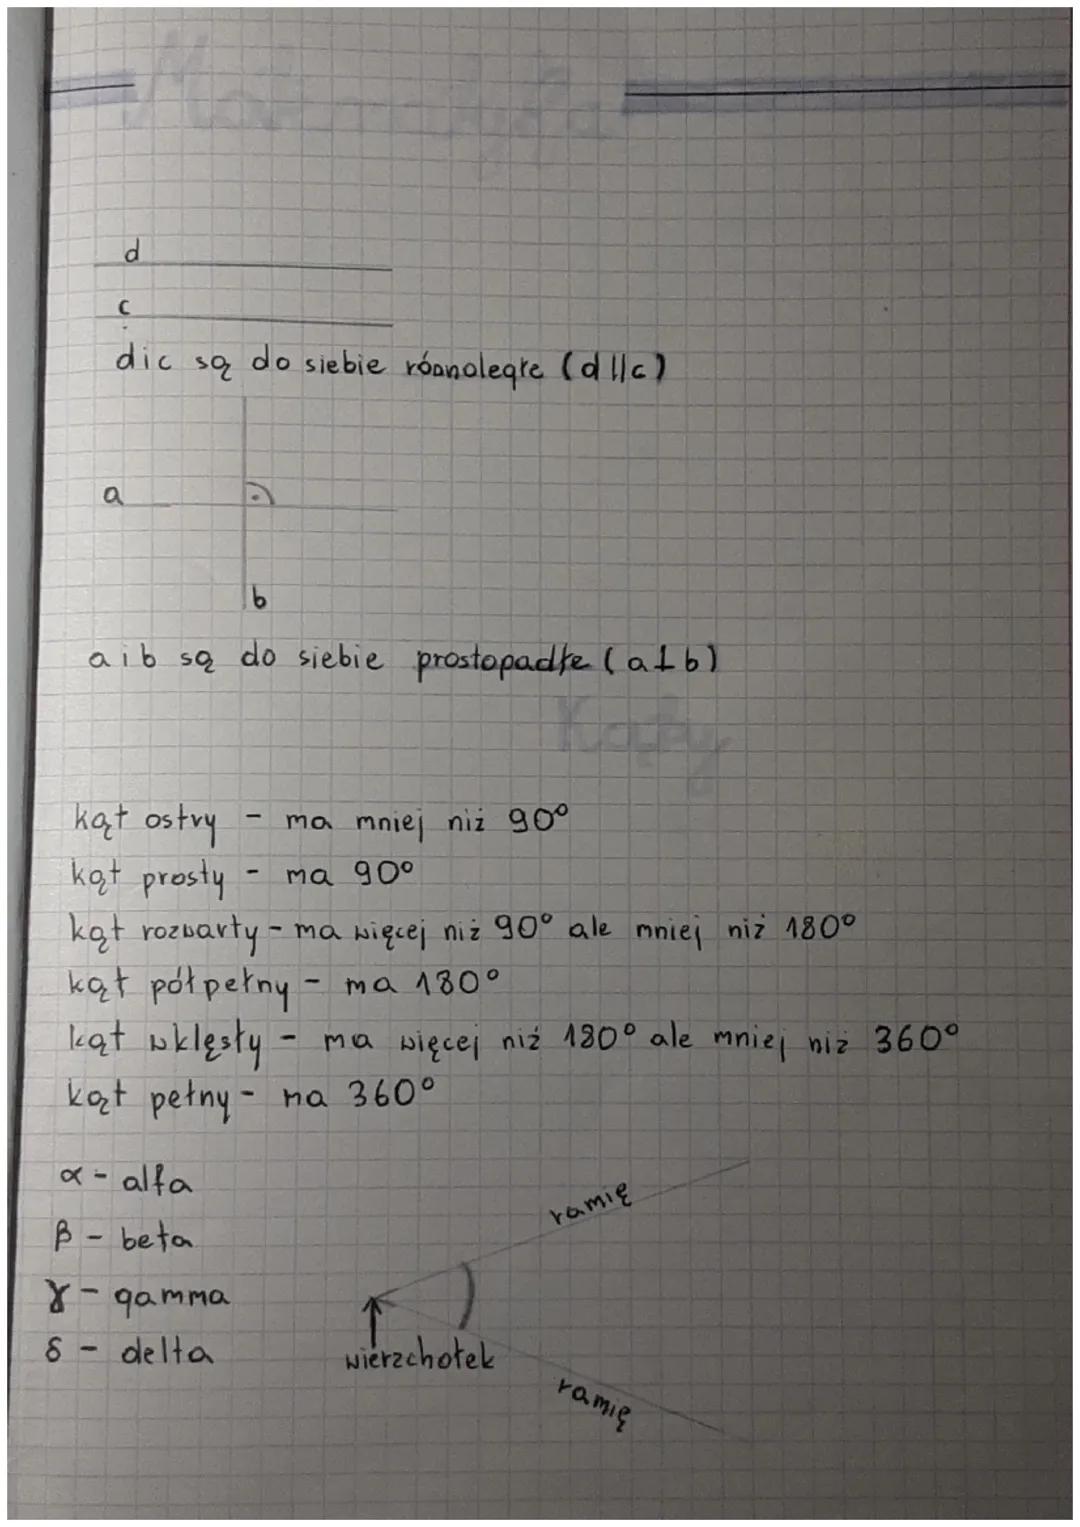 Matematyka
d
c
d i c są do siebie równoległe (d||c)
a
b
a i b są do siebie prostopadłe (a⊥b)
Kąty
kąt ostry - ma mniej niż 90°
kąt prosty - ma 90°
kąt rozwarty - ma więcej niż 90° ale mniej niż 180°
kąt półpełny - ma 180°
kąt wklęsły - ma więcej niż 180° ale mniej niż 360°
kąt pełny - ma 360°
α - alfa
ramię
β - beta
γ - gamma
δ - delta
wierzchołek
ramię